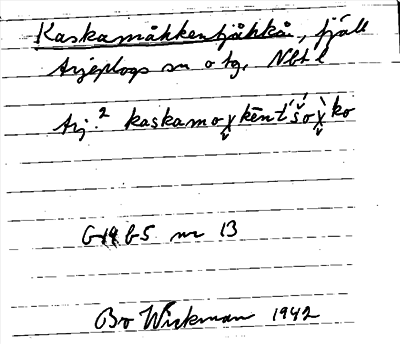 Kaskamåkkentjåkkå, fjäll
Arjeplogs sn o tg, Nbt l
Arj.² kaskamoχkēnt́šoχ̀ko
G 19 b5 nr 13
Bo Wickman 1942